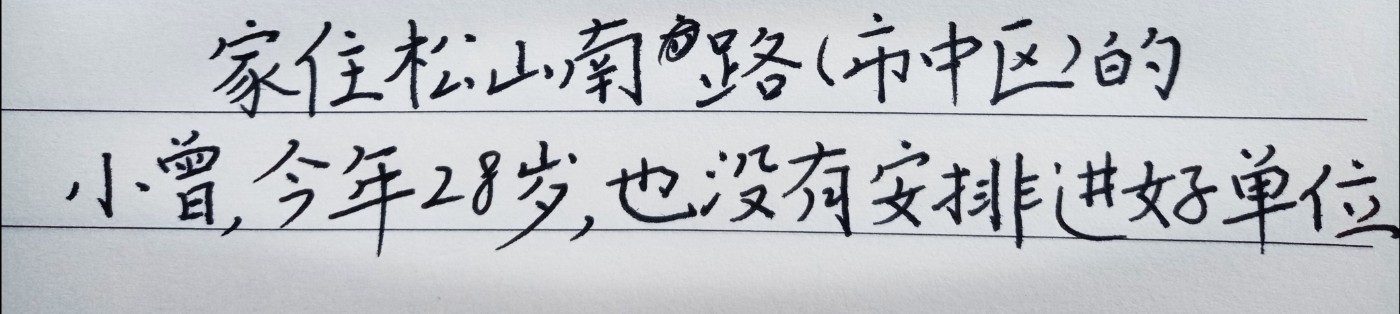 家住松山南路(市中区)的
小曾,今年28岁,也没有安排进好单位